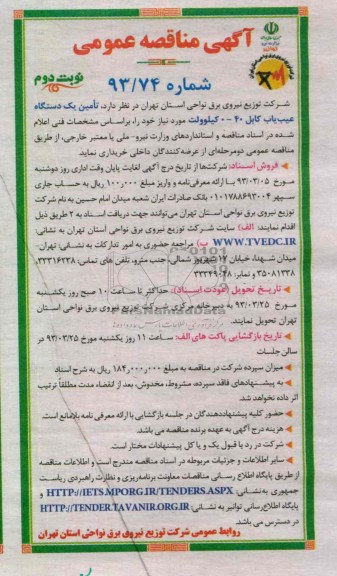 آگهی مناقصه عمومی
نوبت دوم
شماره ۹۳/۷۴
شرکت توزیع نیروی برق نواحی استان تهران در نظر دارد، تأمین یک دستگاه
عیب‌یاب کابل ۴۰ - ۰ کیلوولت مورد نیاز خود را، براساس مشخصات فنی اعلام
شده در اسناد مناقصه و استانداردهای وزارت نیرو-ملی یا معتبر خارجی، از طریق
مناقصه عمومی دومرحله‌ای از عرضه‌کنندگان داخلی خریداری نماید.
فروش اسناد: شرکت‌ها از تاریخ درج آگهی لغایت پایان وقت اداری روز دوشنبه
مورخ ۹۳/۰۳/۰۵ با ارائه معرفی‌نامه و واریز مبلغ ۱۰۰٫۰۰۰ ریال به حساب جاری
سپهر ۰۱۰۱۷۸۸۶۹۳۰۰۴ بانک صادرات ایران شعبه میدان امام حسین به نام شرکت
توزیع نیروی برق نواحی استان تهران می‌توانند جهت دریافت اسناد به ۲ طریق ذیل
اقدام نمایند: الف) سایت شرکت توزیع نیروی برق نواحی استان تهران به نشانی:
WWW.TVEDC.IR ب) مراجعه حضوری به امور تدارکات به نشانی: تهران-
میدان شهدا، خیابان ۱۷ شهریور شمالی، جنب مترو، تلفن های تماس: ۳۳۳۱۶۲۳۸،
۳۵۰۸۱۳۳۸ و نمابر: ۳۳۳۴۹۰۴۸
تاریخ تحویل (عودت اسناد): حداکثر تا ساعت ۱۰ صبح روز یکشنبه
مورخ ۹۳/۰۳/۲۵ به دبیرخانه مرکزی شرکت توزیع نیروی برق نواحی استان
تهران تحویل نمایند.
تاریخ بازگشایی پاکت های الف: ساعت ۱۱ روز یکشنبه مورخ ۹۳/۰۳/۲۵ در
سالن جلسات
میزان سپرده شرکت در مناقصه به مبلغ ۱۸۴٫۰۰۰٫۰۰۰ ریال به شرح اسناد
به پیشنهادهای فاقد سپرده، مشروط، مخدوش، بعد از انقضاء مدت مطلقاً ترتیب
اثر داده نخواهد شد.
حضور کلیه پیشنهاددهندگان در جلسه بازگشایی با ارائه معرفی نامه بلامانع است.
هزینه درج آگهی به عهده برنده مناقصه می باشد.
شرکت در رد یا قبول یک و یا کل پیشنهادات مختار است.
سایر اطلاعات و جزئیات مربوطه در اسناد مناقصه مندرج است و اطلاعات مناقصه
از طریق پایگاه اطلاع رسانی مناقصات معاونت برنامه‌ریزی و نظارت راهبردی ریاست
جمهوری به‌نشانی: HTTP://IETS.MPORG.IR/TENDERS.ASPX و
پایگاه اطلاع‌رسانی توانیر به نشانی: HTTP://TENDER.TAVANIR.ORG.IR
در دسترس می باشد.
روابط عمومی شرکت توزیع نیروی برق نواحی استان تهران